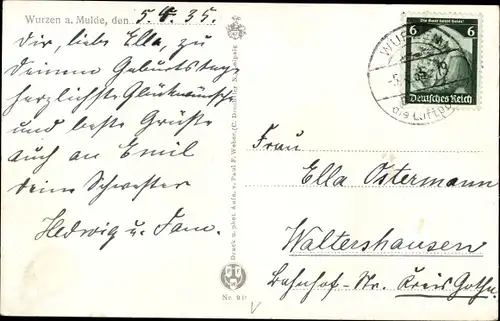 Wurzen a. Mulde, den 5.4.35.
Dir, liebe Ella, zu
Deinem Geburtstage
herzlichste Glückwünsche
und beste Grüße
auch an Emil
deine Schwester
Hedwig u. Fam.
Druck u. phot. Aufn. v. Paul F. Weber
Nr.
Die Saar kehrt heim!
6 6
Deutsches Reich
WUR
die Luftpo
Frau
Ella Ostermann
Waltershausen
Bahnhof-Str. Kreis Gotha